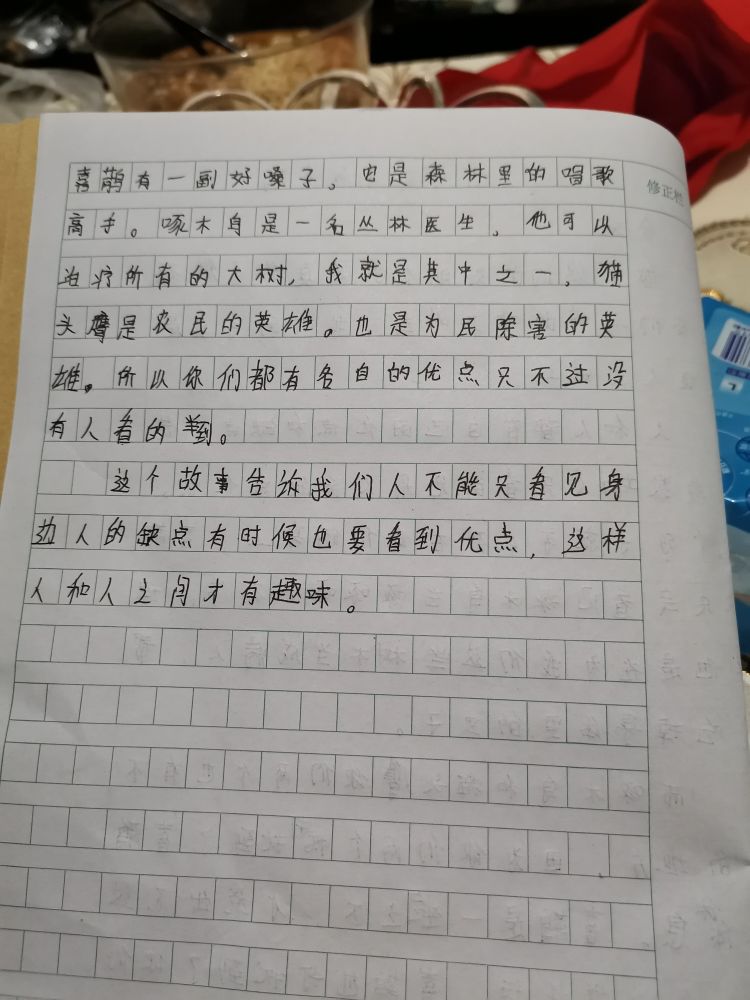 喜鹊有一副好嗓子，它是森林里的唱歌
高手。啄木身是一名丛林医生，他可以
治疗所有的大树，我就是其中之一，猫
头鹰是农民的英雄。也是为民除害的英
雄。所以你们都有各自的优点只不过没
有人看的到。
这个故事告诉我们人不能只看见身
边人的缺点有时候也要看到优点，这样
人和人之间才有趣味。
修正栏